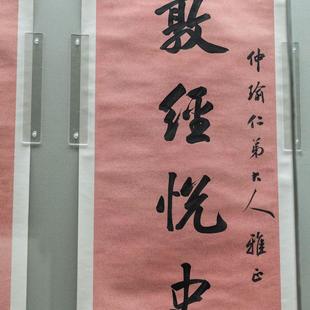 仲瑜仁弟大人雅正
敦經悦史